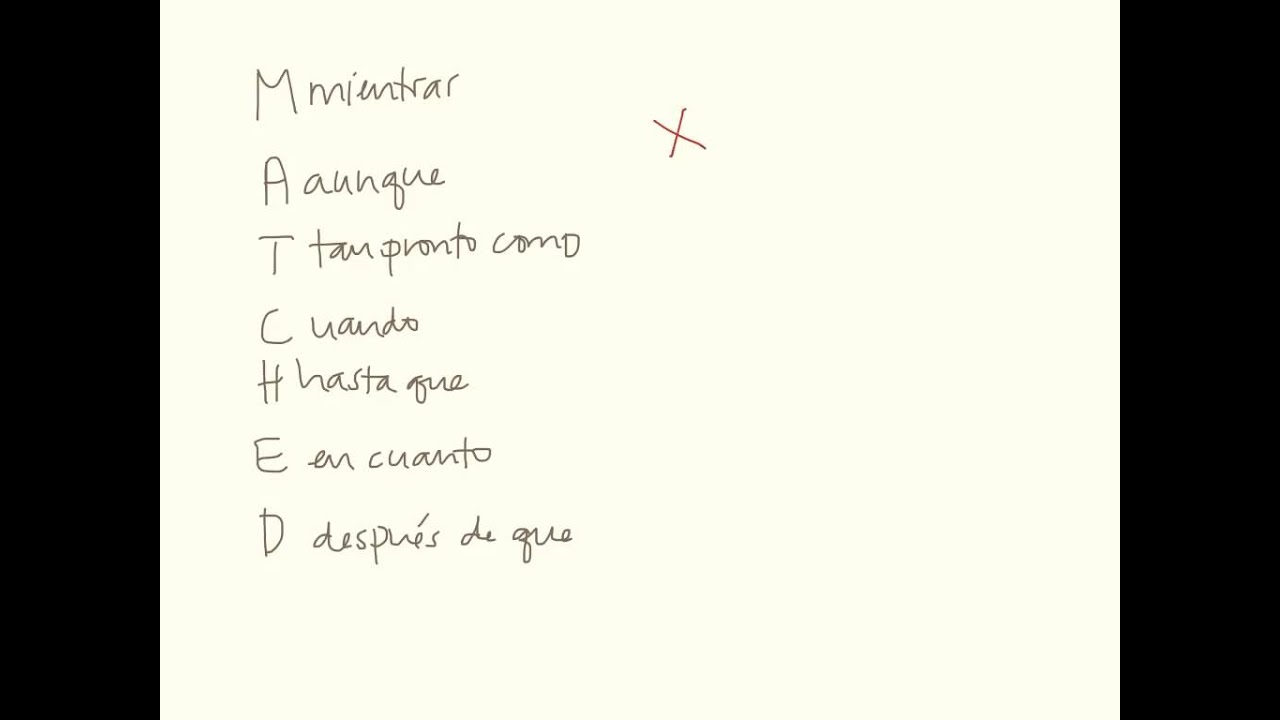 M mientrar
A aunque
T tan pronto como
C uando
H hasta que
E en cuanto
D después de que